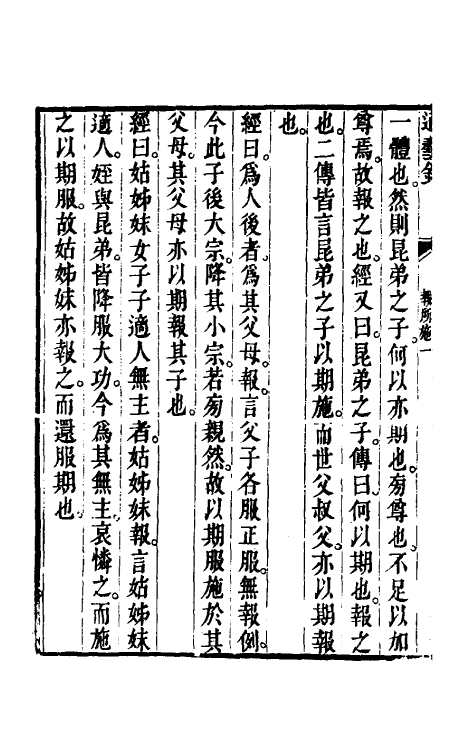 通藝錄
報所施一
一體也。然則昆弟之子。何以亦期也。旁尊也。不足以加
尊焉。故報之也。經又曰。昆弟之子。傳曰。何以期也。報之
也。二傳皆言昆弟之子以期施。而世父叔父。亦以期報
也。
經曰。爲人後者。爲其父母。報。言父子各服正服。無報例。
今此子後大宗。降其小宗。若旁親然。故以期服施於其
父母。其父母亦以期報其子也。
經曰。姑姊妹女子子適人無主者。姑姊妹報。言姑姊妹
適人。姪與昆弟。皆降服大功。今爲其無主。哀憐之。而施
之以期服。故姑姊妹亦報之。而還服期也。